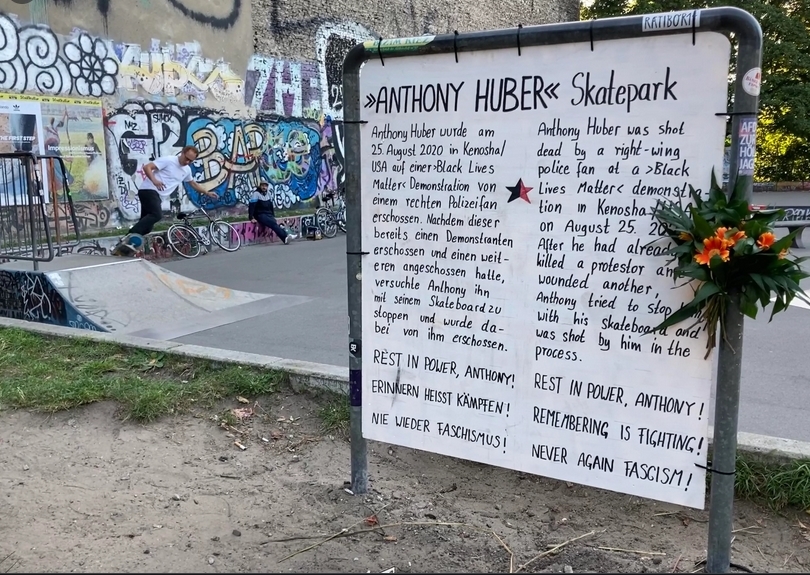 RATIBOR14
»ANTHONY HUBER« Skatepark
Anthony Huber wurde am
25. August 2020 in Kenosha/
USA auf einer >Black Lives
Matter< Demonstration von
einem rechten Polizeifan
erschossen. Nachdem dieser
bereits einen Demonstranten
erschossen und einen weit-
eren angeschossen hatte,
versuchte Anthony ihn
mit seinem Skateboard zu
stoppen und wurde da-
bei von ihm erschossen.
REST IN POWER, ANTHONY!
ERINNERN HEISST KÄMPFEN!
NIE WIEDER FASCHISMUS!
Anthony Huber was shot
dead by a right-wing
police fan at a >Black
Lives Matter< demonst
tion in Kenosha
on August 25. 20
After he had alread
killed a protestor an
wounded another,
Anthony tried to stop
with his skateboard and
was shot by him in the
process.
REST IN POWER, ANTHONY!
REMEMBERING IS FIGHTING!
NEVER AGAIN FASCISM!